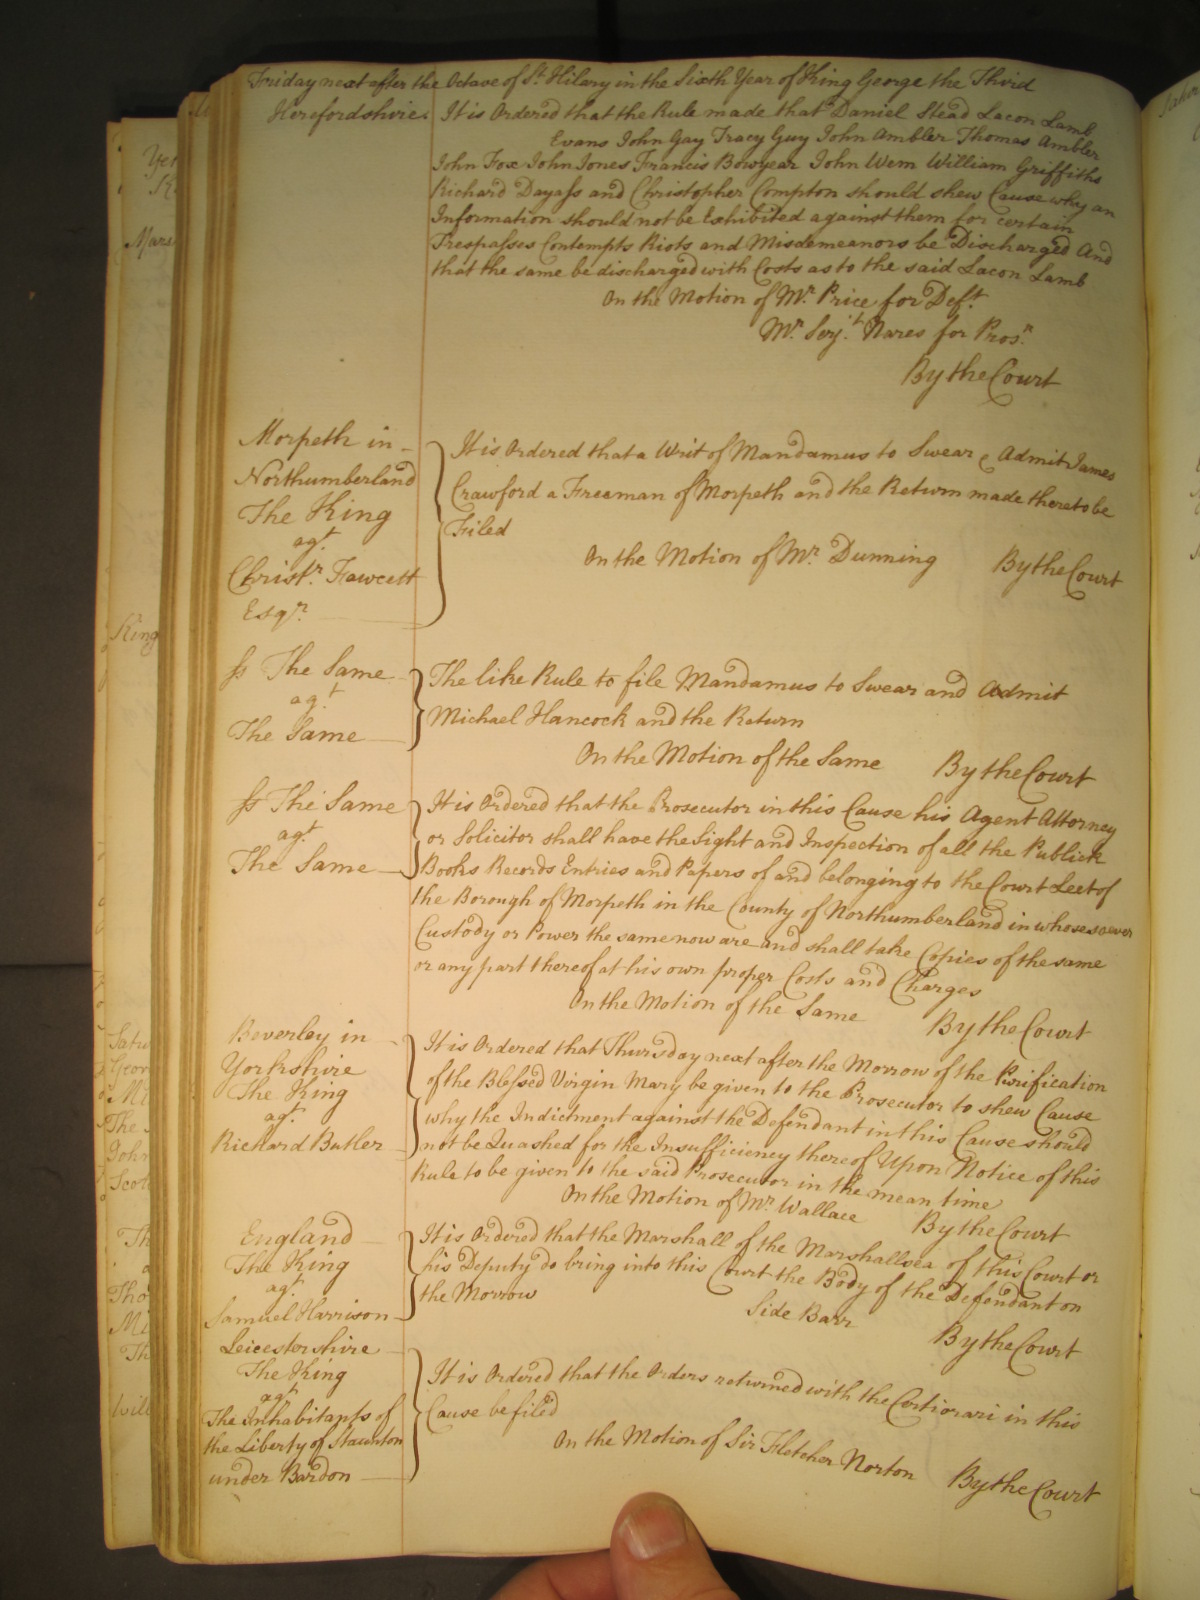 Friday next after the Octave of St. Hilary in the Sixth Year of King George the Third
Herefordshire. It is Ordered that the Rule made that Daniel Stead Lacon Lamb
Evans John Gay Tracy Guy John Ambler Thomas Ambler
John Fox John Jones Francis Bowyear John Wem William Griffiths
Richard Dayass and Christopher Compton should shew Cause why an
Information should not be Exhibited against them for certain
Trespasses Contempts Riots and Misdemeanors be Discharged And
that the same be discharged with Costs as to the said Lacon Lamb
On the Motion of Mr. Price for Deft.
Mr. Serjt. Nares for Prosr.
By the Court
Morpeth in
Northumberland
The King
agt.
Christr. Fawcett
Esqr.
It is Ordered that a Writ of Mandamus to Swear & Admit James
Crawford a Freeman of Morpeth and the Return made thereto be
Filed
On the Motion of Mr. Dunning By the Court
ss The Same
agt
The Same
The like Rule to file Mandamus to Swear and Admit
Michael Hancock and the Return
On the Motion of the Same By the Court
ss The Same
agt
The Same
It is Ordered that the Prosecutor in this Cause his Agent Attorney
or Solicitor shall have the Sight and Inspection of all the Publick
Books Records Entries and Papers of and belonging to the Court Leet of
the Borough of Morpeth in the County of Northumberland in whosesoever
Custody or Power the same now are and shall take Copies of the same
or any part thereof at his own proper Costs and Charges
On the Motion of the Same By the Court
Beverley in
Yorkshire
The King
agt
Richard Butler
It is Ordered that Thursday next after the Morrow of the Purification
of the Blessed Virgin Mary be given to the Prosecutor to shew Cause
why the Indictment against the Defendant in this Cause should
not be Quashed for the Insufficiency thereof Upon Notice of this
Rule to be given to the said Prosecutor in the mean time
On the Motion of Mr Wallace By the Court
England
The King
agt
Samuel Harrison
It is Ordered that the Marshall of the Marshallsea of this Court or
his Deputy do bring into this Court the Body of the Defendant on
the Morrow
Side Barr
By the Court
Leicestershire
The King
agt
The Inhabitants of
the Liberty of Staunton
under Bardon
It is Ordered that the Orders returned with the Certiorari in this
Cause be filed
On the Motion of Sir Fletcher Norton By the Court